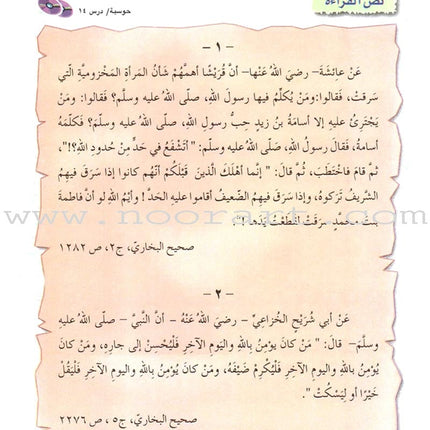 نص القراءة
حوسبة/ درس ١٤
– ١ –
عَنْ عائِشَةَ– رضيَ اللهُ عَنْها– أنَّ قُرَيْشًا أَهمَّهُمْ شَأنُ المَرأةِ المَخْزوميّةِ الّتي
سَرقتْ، فقالوا: ومَنْ يُكلّمُ فيها رسولَ اللهِ، صلى اللهُ عليه وسلّم؟ فقالوا: ومَنْ
يَجْترِئُ عليهِ إلا أسامةُ بنُ زيدٍ حِبُّ رسولِ اللهِ، صلى اللهُ عليه وسلّم؟ فكلّمهُ
أسامةُ، فقالَ رسولُ اللهِ، صَلّى اللهُ عليه وسلّم: "أتشْفَعُ في حَدٍّ مِنْ حُدودِ اللهِ؟!"،
ثمَّ قامَ فاخْتطَبَ، ثُمَّ قالَ: "إنَّما أهْلكَ الّذينَ قَبْلَكُمْ أنّهُم كانوا إذا سَرَقَ فيهِمُ
الشَّريفُ تَركوهُ، وإذا سَرَقَ فيهِمُ الضّعيفُ أقاموا عليهِ الحَدَّ! وأيْمُ اللهِ لو أنّ فاطمةَ
بنتَ محمّدٍ سرقتْ لقَطعْتُ يَدَها!".
صحيح البخاريّ، ج٢، ص ١٢٨٢
www.nooraart.com
– ٢ –
عَنْ أبي شُرَيْحٍ الخُزاعيّ – رضيَ اللهُ عَنْهُ – أنّ النّبيَّ – صلّى اللهُ عليهِ
وسلّمَ– قالَ: "مَنْ كانَ يؤمِنُ باللهِ واليومِ الآخِرِ فَلْيُحْسِنْ إلى جارِهِ، ومَنْ كانَ
يُؤمِنُ باللهِ واليومِ الآخِرِ فَلْيُكْرِمْ ضَيْفَهُ، ومَنْ كانَ يُؤمِنُ باللهِ واليومِ الآخِرِ فَلْيَقُلْ
خَيْرًا أو لِيَسكُتْ".
صحيح البخاريّ، ج٥، ص ٢٢٧٦